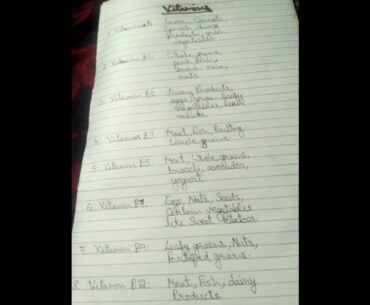 Vitamins
1. Vitamin A: Liver, Carrots,
Spinach, dairy
Products, and
vegetables
2. Vitamin B1: Whole grains,
pork, fish,
nuts
3. Vitamin B2: Dairy Products,
eggs, green leafy
vegetables, lean
meats
4. Vitamin B3: Meat, Fish, Poultry,
Whole grains
5. Vitamin B5: Meat, Whole grains,
brocoli, avocados,
yogurt
6. Vitamin B7: Eggs, Nuts, Seeds,
Certain vegetables
like Sweet Potatoes
7. Vitamin B9: Leafy greens, Nuts,
Fortified grains.
8. Vitamin B12: Meat, Fish, dairy
Products